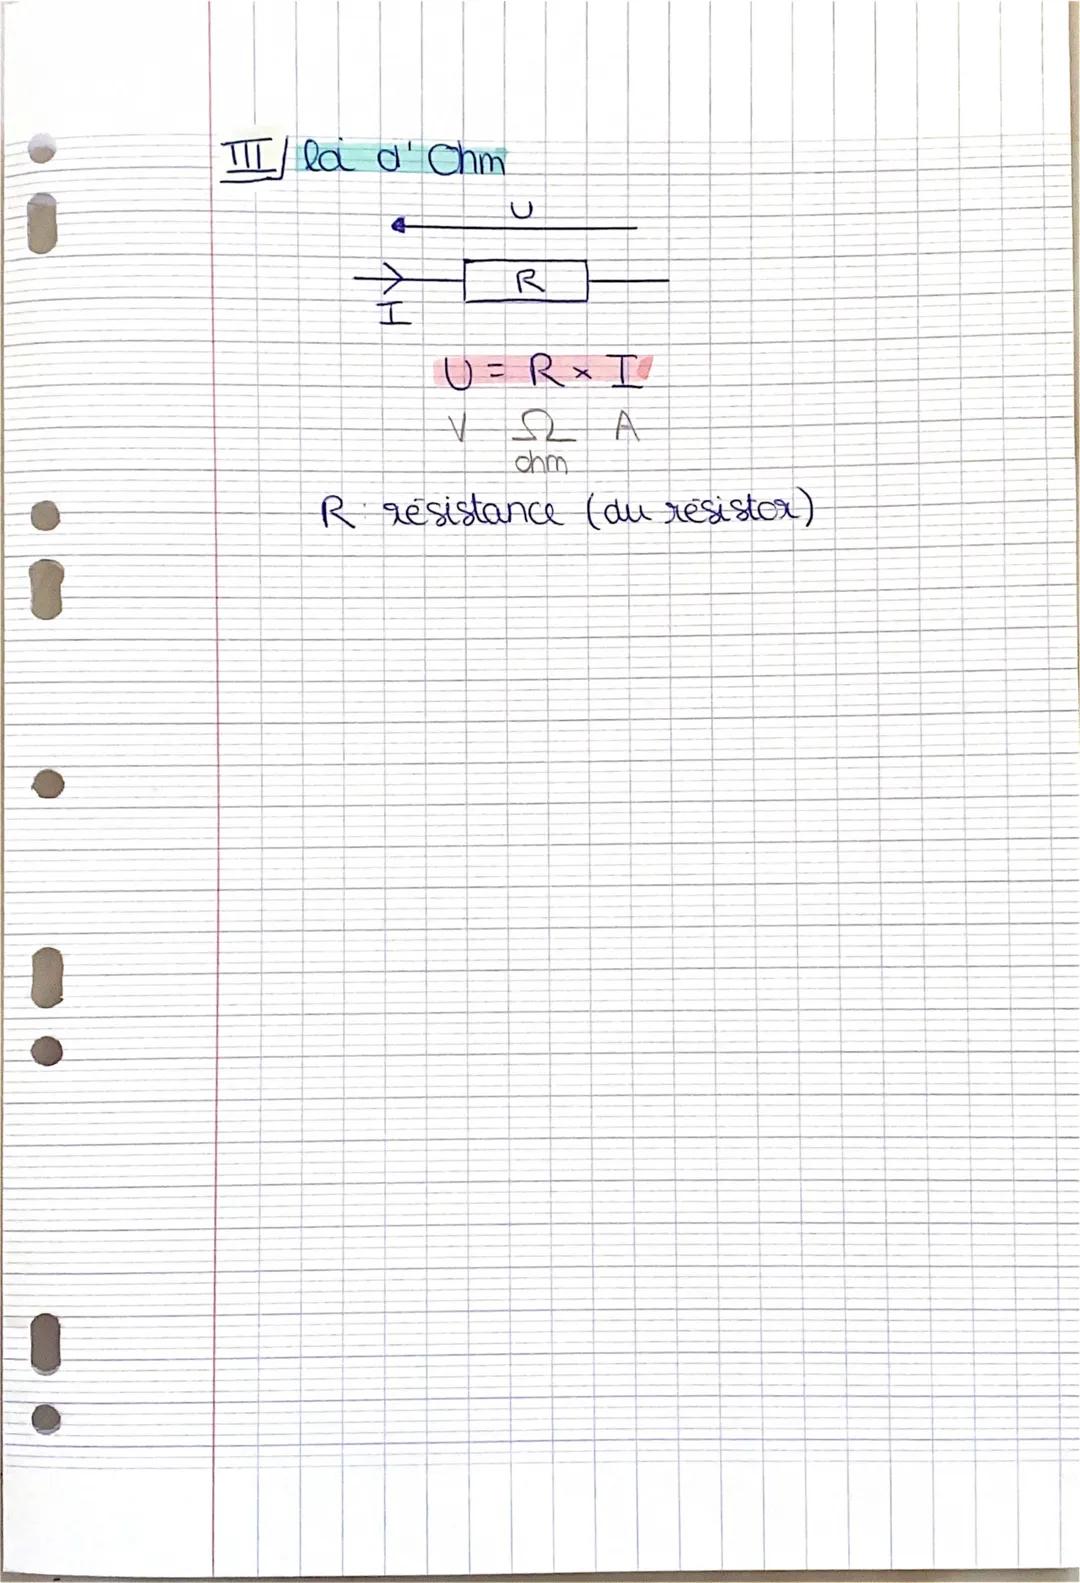 III/ loi d'Ohm
U
R
I
U = R × I
V Ω A
ohm
R : résistance (du résistor)